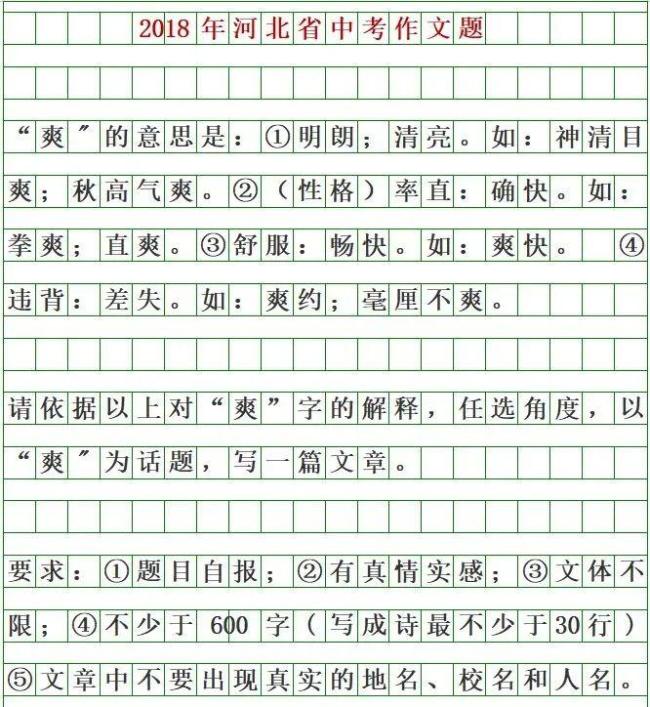 2018年河北省中考作文题
“爽〞的意思是：①明朗；清亮。如：神清目
爽；秋高气爽。②（性格）率直：确快。如：
拳爽；直爽。③舒服：畅快。如：爽快。 ④
违背：差失。如：爽约；毫厘不爽。
请依据以上对“爽”字的解释，任选角度，以
“爽〞为话题，写一篇文章。
要求：①题目自报；②有真情实感；③文体不
限；④不少于 600 字（写成诗最不少于30行）
⑤文章中不要出现真实的地名、校名和人名。